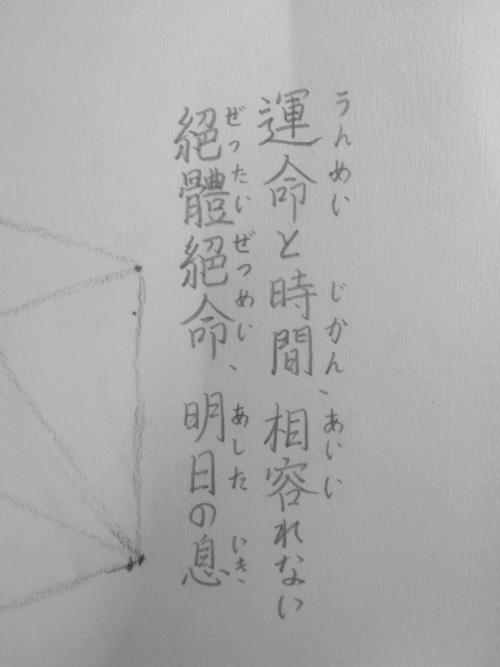 うんめい　じかん、あいい
運命と時間、相容れない
ぜったいぜつめい、あした　いき
絕體絕命、明日の息